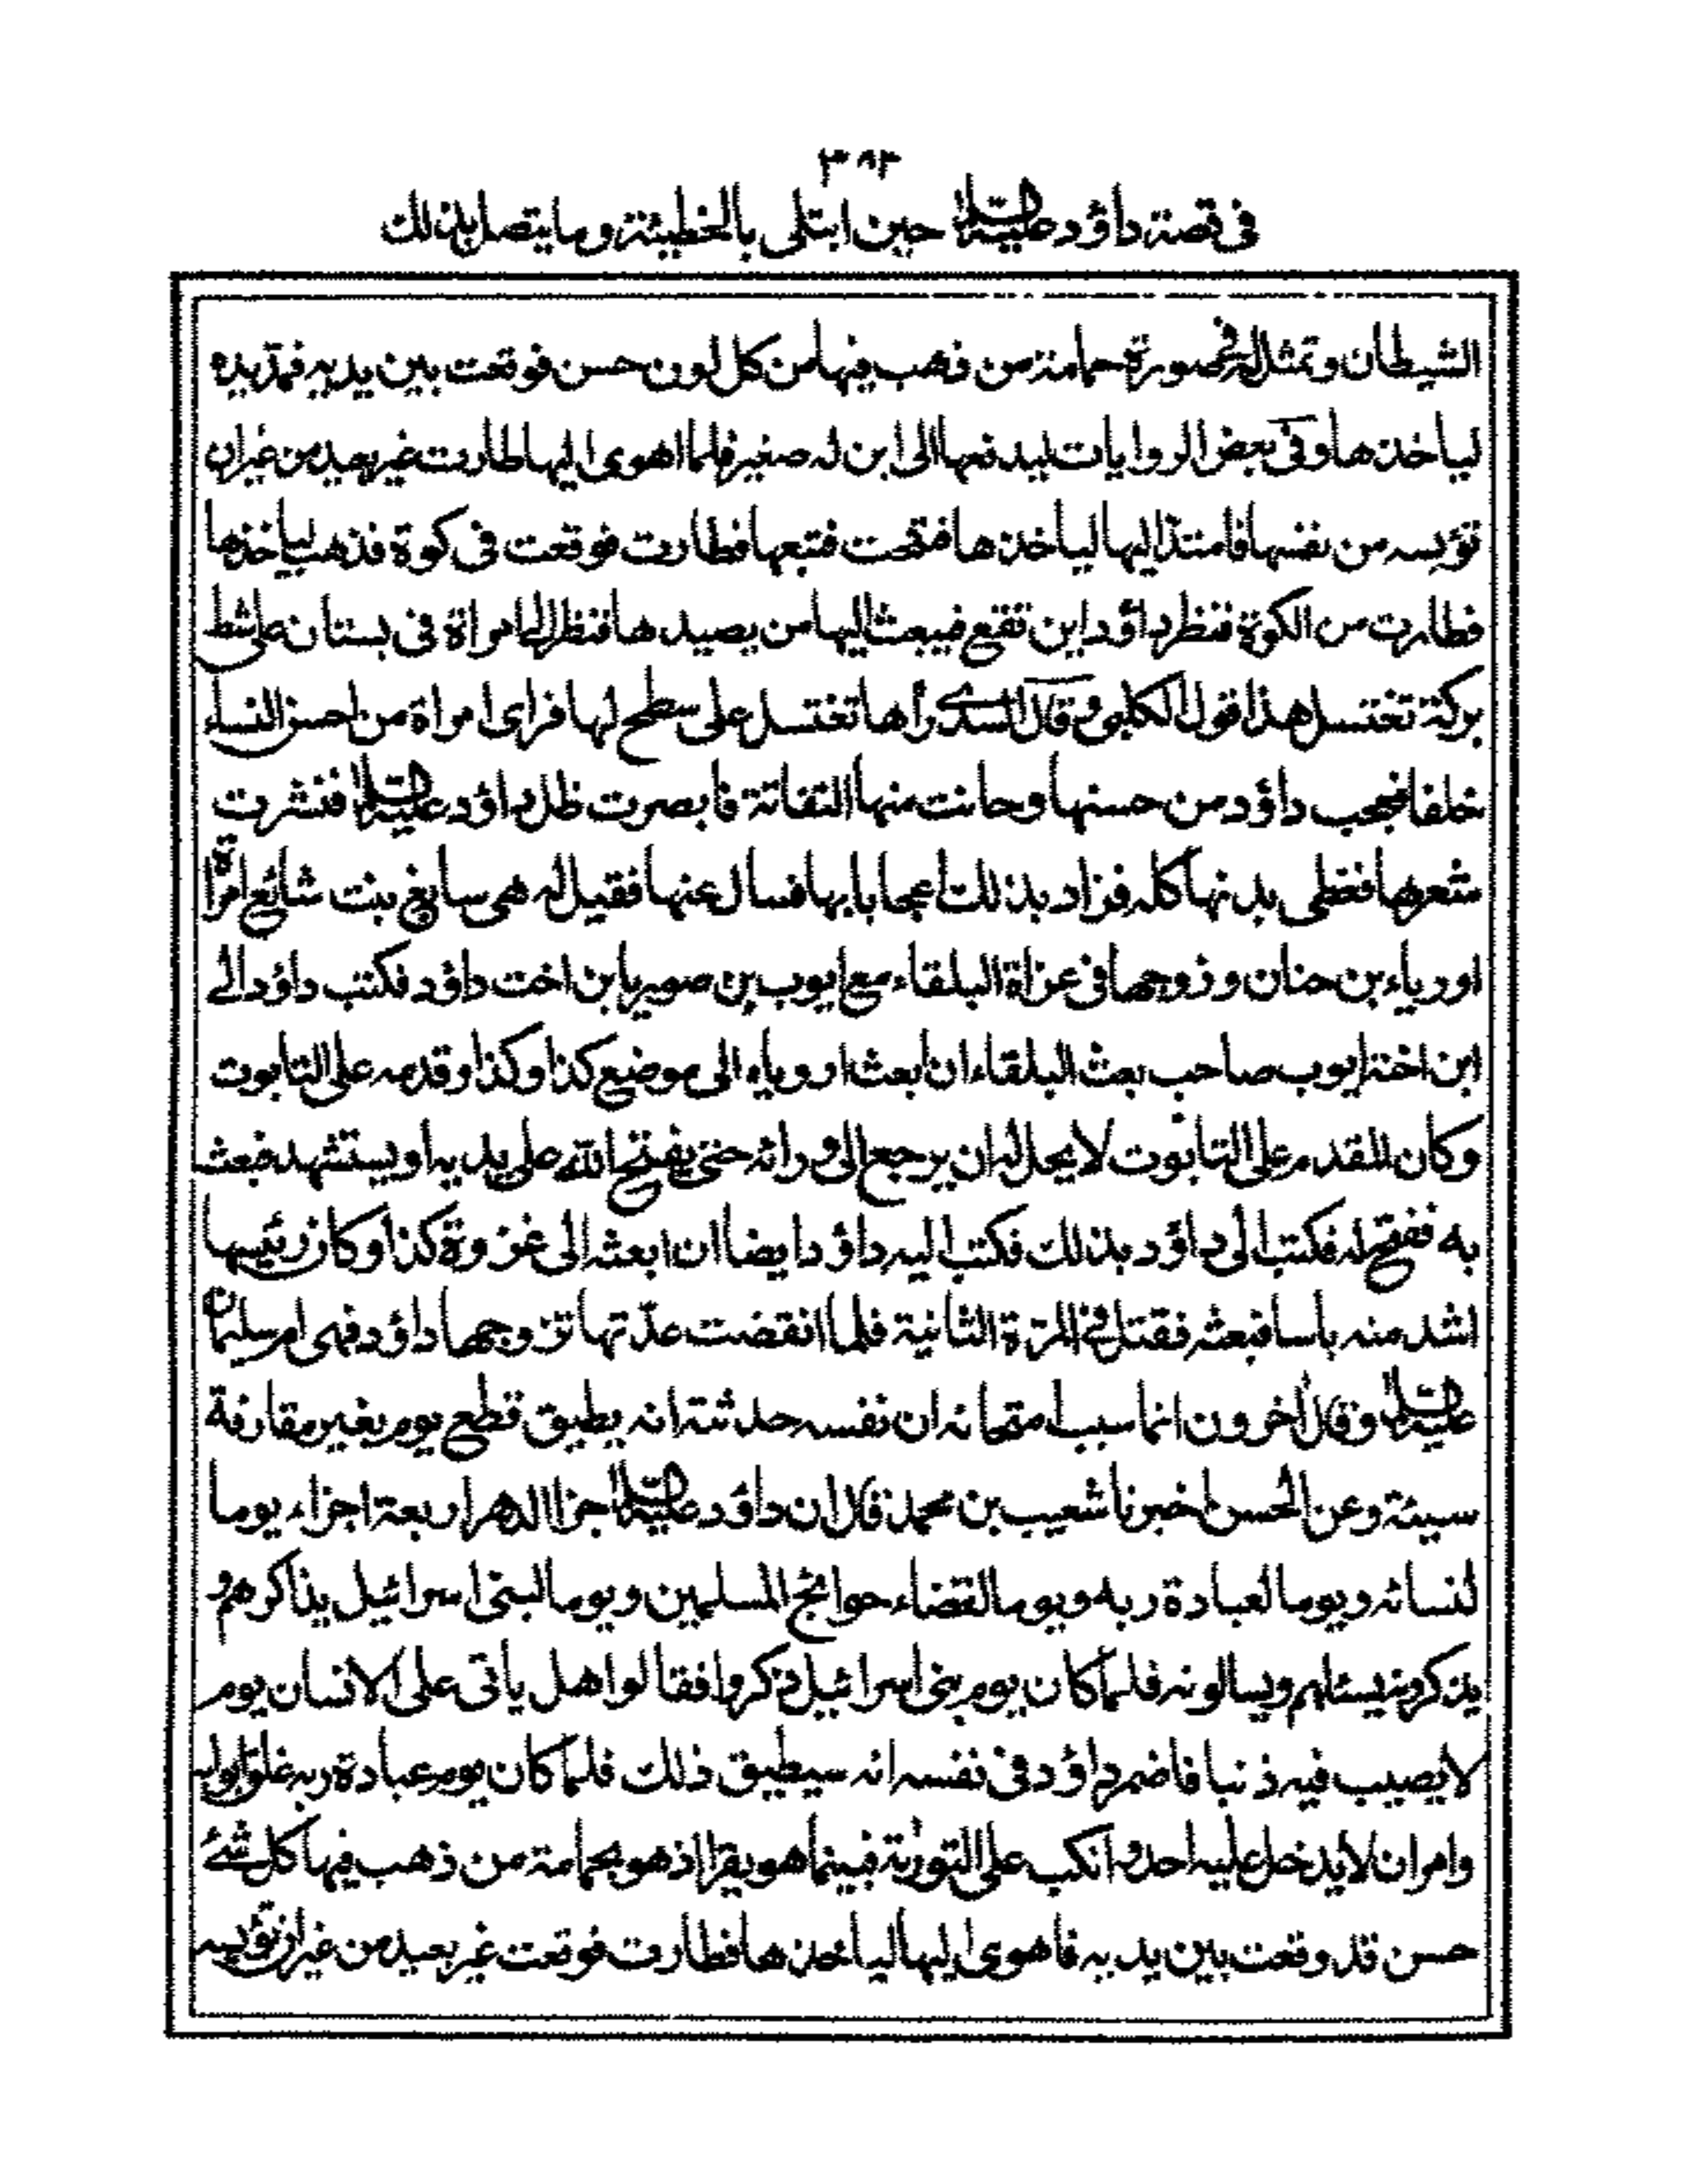 ٣٨٣
فی قصة داؤد علیه السلام حین ابتلی بالخطیئة وما یتصل بذلك
الشیطان وتمثل له فی صورة حمامة من ذهب فیها من کل لون حسن فوقعت بین یدیه فمد یده
لیاخذها وفی بعض الروایات لیدفعها الی ابن له صغیر فلما اهوی الیها طارت غیر بعید من غیر ان
تؤیسه من نفسها فامتد الیها لیاخذها فتنحت فتبعها فطارت فوقعت فی کوة فذهب لیاخذها
فطارت من الکوة فنظر داؤد این تقع فیبعث الیها من یصیدها فنظر الی امراة فی بستان علی شط
برکة تغتسل هذا قول الکلبی وقال السدی رأها تغتسل علی سطح لها فرای امراة من احسن النساء
خلقا فعجب داؤد من حسنها وحانت منها التفاتة فابصرت ظل داؤد علیه السلام فنشرت
شعرها فغطی بدنها کله فزاد بذلك اعجابا بها فسال عنها فقیل له هی سایغ بنت شائع امرأة
اوریاء بن حنان وزوجها فی غزاة البلقاء مع ایوب بن صوریا بن اخت داؤد فکتب داؤد الی
ابن اخته ایوب صاحب بعث البلقاء ان ابعث اوریاء الی موضع کذا وکذا وقدمه علی التابوت
وکان المقدم علی التابوت لا یحل له ان یرجع الی ورائه حتی یفتح الله علی یدیه او یستشهد فبعث
به ففتح له فکتب الی داؤد بذلك فکتب الیه داؤد ایضا ان ابعثه الی غزوة کذا وکان رئیسها
اشد منه باسا فبعثه فقتل فی المرة الثانیة فلما انقضت عدتها تزوجها داؤد فهی ام سلیمان
علیه السلام وقال اخرون انما سبب امتحانه ان نفسه حدثته انه یطیق قطع یوم بغیر مقارفة
سیئة وعن الحسن اخبرنا شعیب بن محمد قال ان داؤد علیه السلام جزا الدهر اربعة اجزاء یوما
لنسائه ویوما لعبادة ربه ویوما لقضاء حوائج المسلمین ویوما لبنی اسرائیل یذاکرهم و
یذکرونه یسئلهم ویسالونه فلما کان یوم بنی اسرائیل ذکروا فقالوا هل یاتی علی الانسان یوم
لا یصیب فیه ذنبا فاضمر داؤد فی نفسه انه سیطیق ذلك فلما کان یوم عبادة ربه غلق ابوابه
وامر ان لا یدخل علیه احد وانکب علی التورٰیة فبینما هو یقرا اذ هو بحمامة من ذهب فیها کل شئ
حسن قد وقعت بین یدیه فاهوی الیها لیاخذها فطارت فوقعت غیر بعید من غیر ان تؤیسه